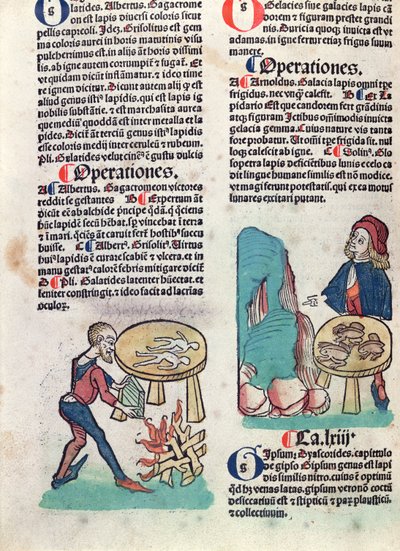 tarides. Albertus. Sagacromon
on est lapis diuersi coloris sicut
pellis caprcoli. Idez. Grisolitus est gem
ma coloris aurei in horis matutinis visu
pulcherrimus est. in alijs aūt horis dissimi
lis. ab igne autem corrumpit̄ ⁊ fugat. Et
vt quidam dicūt inflāmatur. ⁊ ideo time
re ignem dicitur. Dicunt autem alij q̄ est
aliud genus isti⁹ lapidis. qui est lapis ig
nobilis substātie. ⁊ est marchasita aurea
que mediū quoddā est inter metalla et la
pides. Dicūt ⁊ā tertiū genus isti⁹ lapidis
esse coloris medij inter ceruleū ⁊ rubeum.
Pli. Galatides velut cine⁹ ⁊ gustu dulcis
Operationes.
A Albertus. Sagacromeon victores
reddit se gestantes B Expertum aūt
dicūt eē ab alchide p̄ncipe
hūc lapidē secū hēbat. sp̄ vincebat ī terra
⁊ ī mari.
buisse. C Alber⁹. Grisolit⁹. Uirtus
hui⁹ lapidis ē curare scabiē ⁊ vlcera. et in
manu gestat⁹ calorē febris mitigare dicit̄
D Pli. Galatides latenter hūectat. et
leniter constringit. ⁊ ideo facit ad lacrias
oculor.
G Gelacies siue galacies lapis ē
dorem ⁊ figuram prestet grandi
nis. Duricia quoqꝫ inuicta est vt
adamas. in igne fertur etiaꝫ frigus suum
manere.
Operationes.
A Arnoldus. Galacia lapis omni tꝑe
frigidus. nec vnqꝫ calefit. B Ex La
pidario Est que candorem fert grādinis
atqꝫ figuram Ictibus omnimodis inuicta
gelacia gemma. Cuius nature vis tanta
fore probatur. Ut omni tꝑe frigida sit. nul
loqꝫ calescit ab igne. C Solin⁹. Glo
sopetra lapis deficētibus lunis e celo ca
dit lingue humane similis est non modice.
vt magi ferunt potestatis. qui ex ea motus
lunares excitari putant.
Ca. lxiij
Gipsum. Dyascorides. capitulo
de gipso Gipsum genus est lapi
dis similis nitro. cuius ē optimū
qd̄ hꝫ venas latas. gipsum veronō coctū
desiccatiuū est ⁊ stipticū ⁊ par plausticū.
⁊ collectiuum.